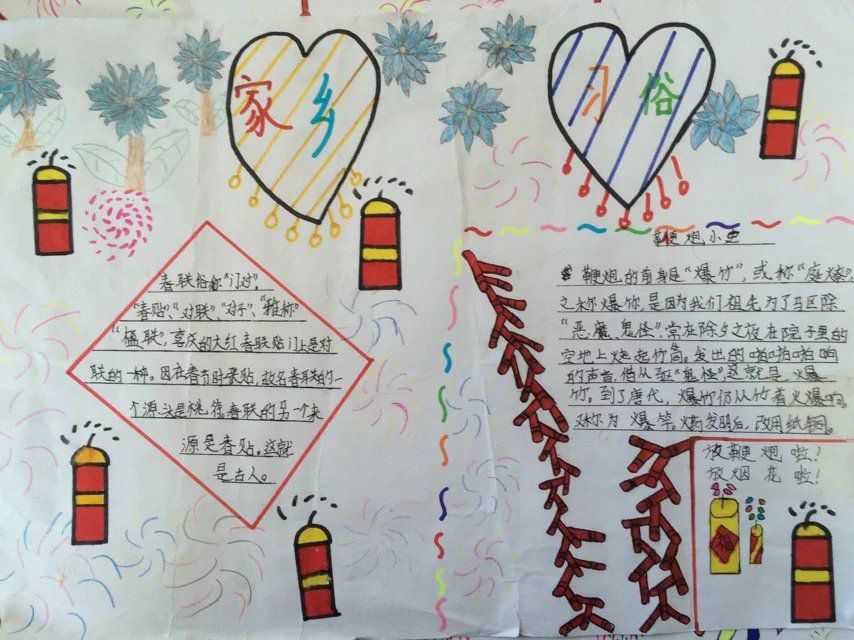 家乡
习俗
春联俗称"门对"。
"春贴"、"对联"、"对子"、"雅称"
"楹联"，喜庆的大红春联贴门上是对
联的一种。因在春节时张贴，故名春联的一
个源头是桃符春联的另一个来
源是春贴。这就
是古人。
鞭炮小史
鞭炮的前身是"爆竹"，或称"庭燎"，
之称爆竹，是因为我们祖先为了驱除
"恶魔、鬼怪"，常在除夕之夜在院子里的
空地上烧起竹筒。发出的啪啪啪响
的声音，借从驱"鬼怪"，这就是，爆
竹。到了唐代，爆竹仍从竹着火爆响，
又称为爆竿。发明后，改用纸铜。
放鞭炮啦！
放烟花啦！
福